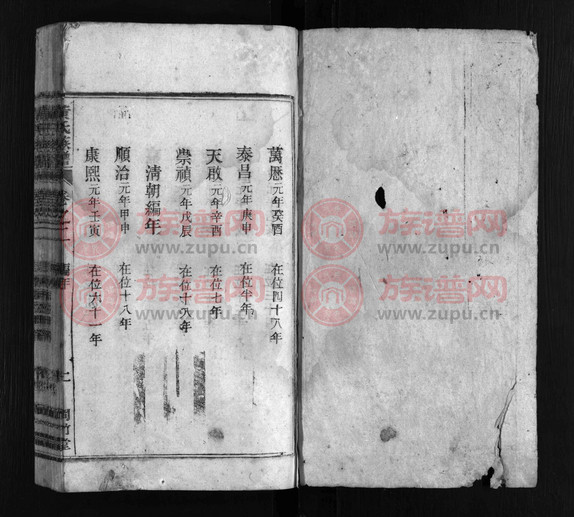 萬厯元年癸酉 在位四十八年
泰昌元年庚申 在位半年
天啟元年辛酉 在位七年
崇禎元年戊辰 在位十八年
清朝編年
順治元年甲申 在位十八年
康熙元年壬寅 在位六十一年
黃氏族譜
卷之二
編年
族谱网
www.zupu.cn
族谱网
www.zupu.cn
族谱网
www.zupu.cn
族谱网
www.zupu.cn